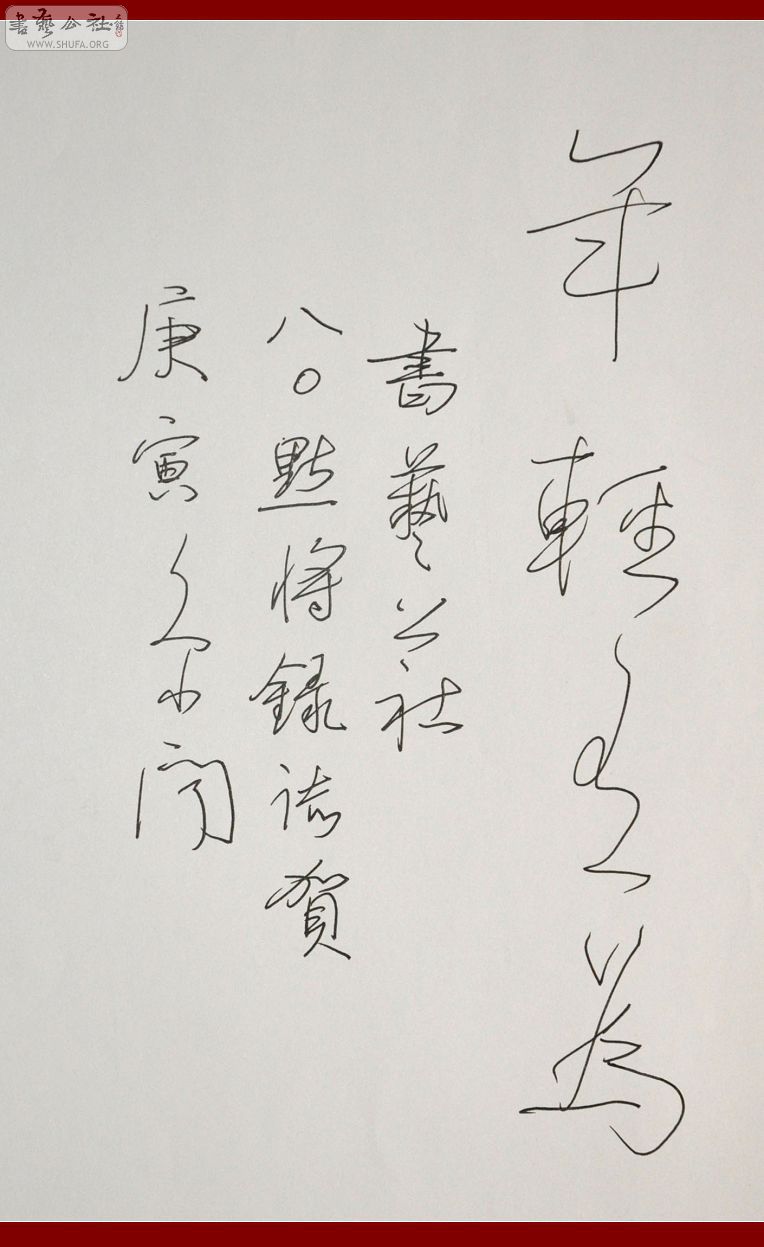 書藝公社
WWW.SHUFA.ORG
年輕有為
書藝公社
八〇點將錄誌賀
庚寅